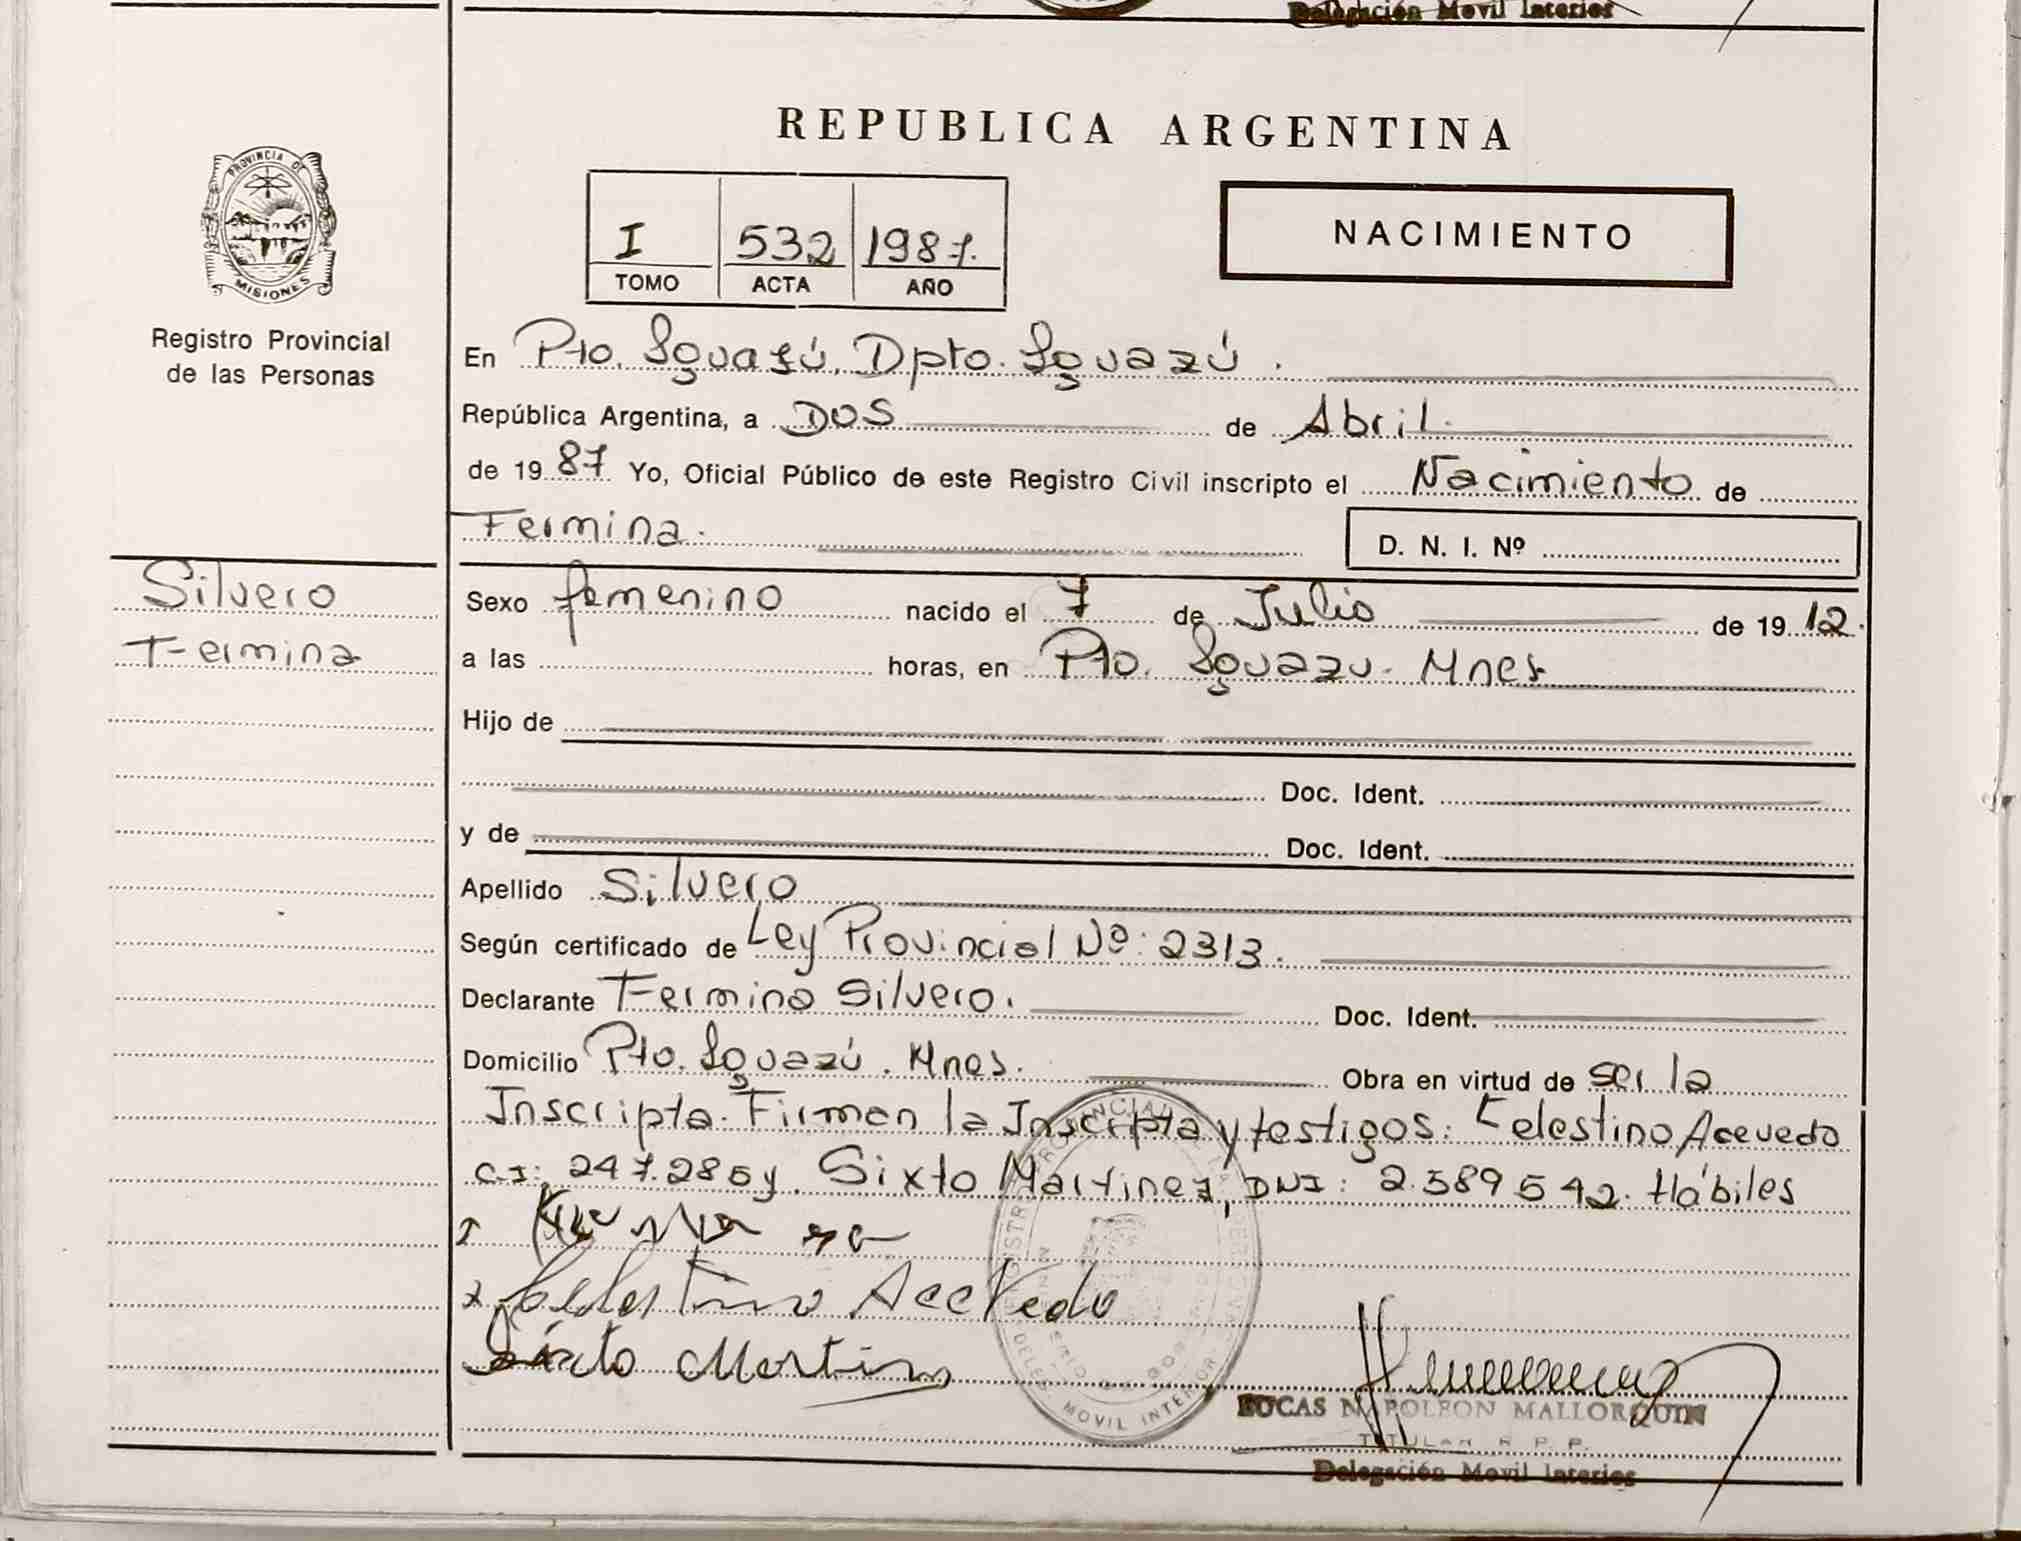 Delegación Movil Interior
REPUBLICA ARGENTINA
PROVINCIA DE
MISIONES
Registro Provincial
de las Personas
I 532 1987.
TOMO ACTA AÑO
NACIMIENTO
En Pto. Iguazú, Dpto. Iguazú.
República Argentina, a DOS de Abril.
de 1987 Yo, Oficial Público de este Registro Civil inscripto el Nacimiento de
Fermina.
D. N. I. Nº
Silvero
Fermina
Sexo femenino nacido el 7 de Julio de 1912.
a las horas, en Pto. Iguazu. Mnes
Hijo de
Doc. Ident.
y de Doc. Ident.
Apellido Silvero
Según certificado de Ley Provincial Nº: 2313.
Declarante Fermina Silvero. Doc. Ident.
Domicilio Pto. Iguazú. Mnes. Obra en virtud de ser la
Inscripta. Firman la Inscripta y testigos: Celestino Acevedo
C.I: 247.285 y. Sixto Martinez, DNI: 2.589542. Hábiles
x
x Celestino Acevedo
Sixto Martin
MOVIL INTERIOR
LUCAS NAPOLEON MALLORQUIN
TITULAR R. P. P.
Delegación Movil Interior